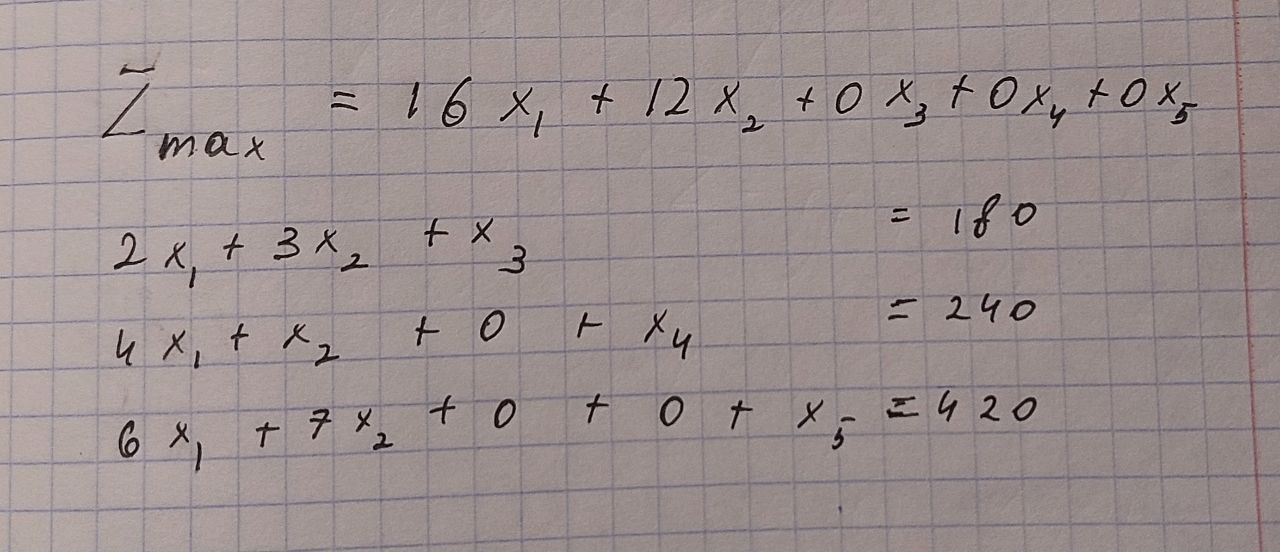 Z̄max = 16x₁ + 12x₂ + 0x₃ + 0x₄ + 0x₅
2x₁ + 3x₂ + x₃ = 180
4x₁ + x₂ + 0 + x₄ = 240
6x₁ + 7x₂ + 0 + 0 + x₅ = 420